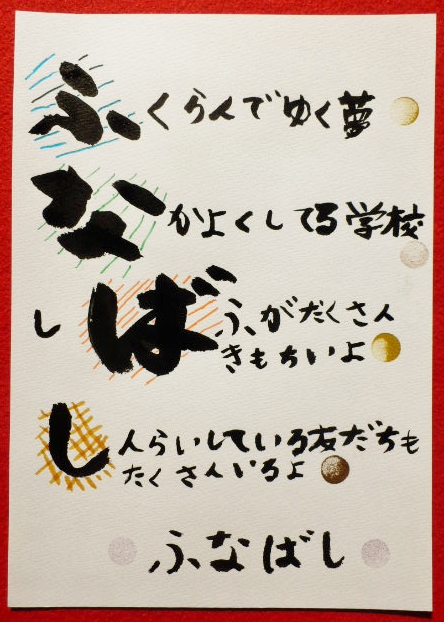 ふくらんでゆく夢
なかよくしてる学校
しばふがたくさん
きもちいよ
しんらいしている友だちも
たくさんいるよ
ふなばし